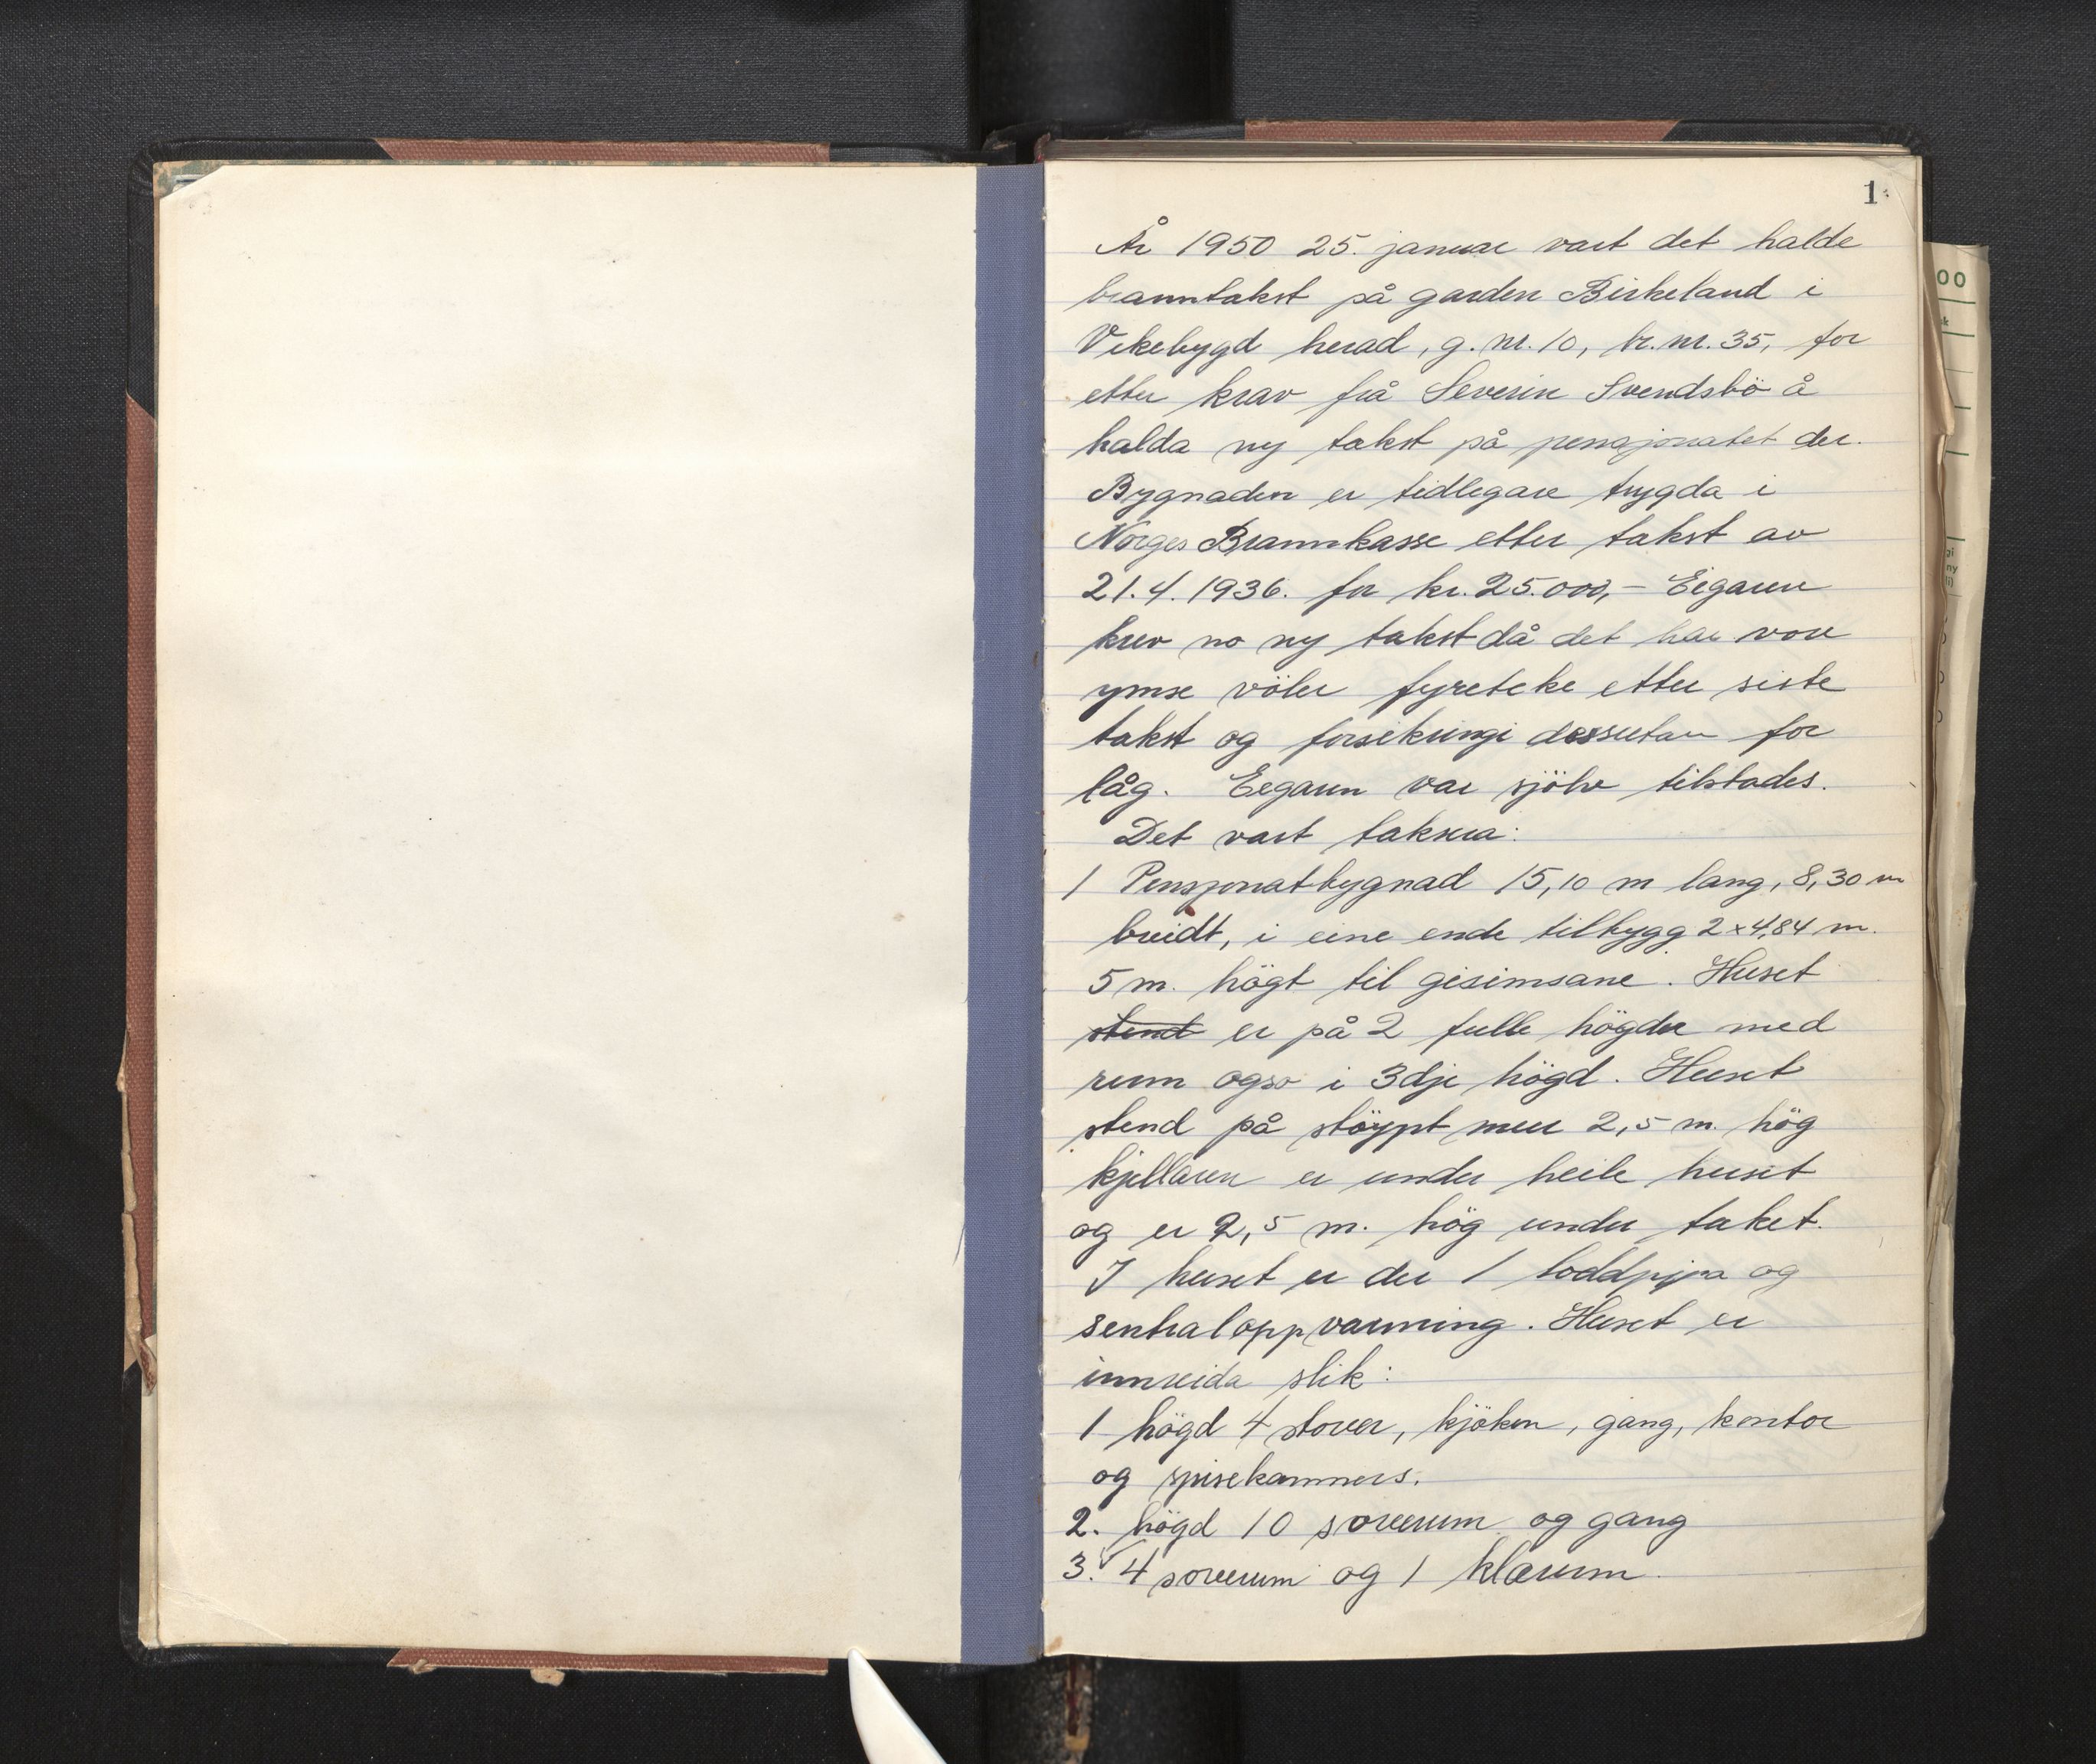 1
År 1950 25. januar vart det halde
branntakst på garden Birkeland i
Vikebygd herad, g. nr. 10, br. nr. 35, for
etter krav frå Severin Svendsbö å
halda ny takst på pensjonatet der.
Bygnaden er tidlegare trygda i
Norges Brannkasse etter takst av
21.4.1936. for kr. 25.000,- Eigaren
krev no ny takst då det har vore
ymse völer fyreteke etter siste
takst og forsikringi dessutan for
låg. Eigaren var sjölv tilstades.
Det vart taksera:
1 Pensjonatbygnad 15,10 m lang, 8,30 m
breidt, i eine ende tilbygg 2x4,84 m.
5 m. högt til gesimsane. Huset
stend er på 2 fulle högder med
rum ogso i 3dje högd. Huset
stend på stöypt mur 2,5 m. hög
kjellaren er under heile huset
og er 2,5 m. hög under taket.
I huset er der 1 loddpipa og
sentraloppvarming. Huset er
innreida slik:
1 högd 4 stover, kjöken, gang, kontor
og spisekammers.
2. högd 10 soverum og gang
3. 4 soverum og 1 klærum.
00